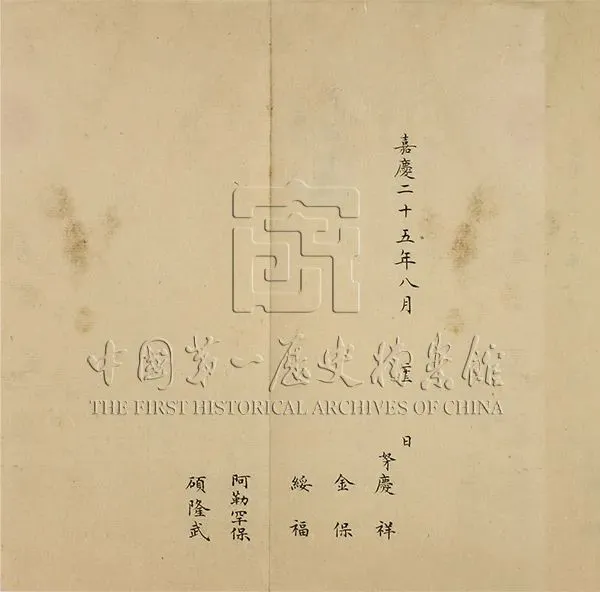 嘉慶二十五年八月 日
奴才慶祥
金保
綏福
阿勒罕保
碩隆武
中國第一歷史檔案館
THE FIRST HISTORICAL ARCHIVES OF CHINA